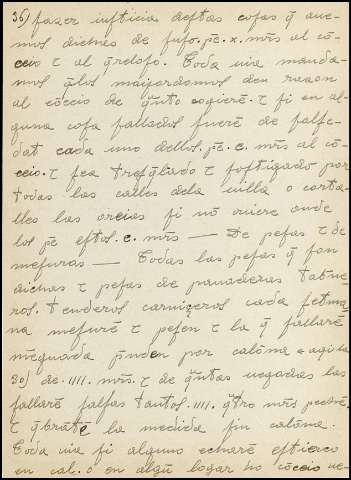 36) fazer iuſticia deſtas coſas q̄ aue-
mos dichas de ſuſo. pē. x. mr̄s al cō-
ceio τ al q̄reloſo. Toda uia manda-
mos q̄ los maiordomos den razon
al cōceio de q̄nto cogierē. τ ſi en al-
guna coſa fallados fuerē de falſe-
dat cada uno dellos. pē. c. mr̄s al cō-
ceio. τ ſea treſq̄lado τ foſtigado por
todas las calles dela uilla o corta-
lles las oreias ſi nō ouiere onde
los pē eſtos. c. mr̄s — De peſas τ de
meſuras — Todas las peſas q̄ ſon
dichas τ peſas de panaderas taɓne
ros. tenderos carniçeros cada ſetma-
na meſurē τ peſen τ la q̄ fallarē
mēguada p̄nden por calōna
30) de. IIII. mr̄s. τ de q̄ntas uegadas las
fallarē falſas tantos. IIII. q̄tro mr̄s pechē.
τ q̄brātē la medida ſin calōna.
Toda uia ſi alguno echarē eſtierco
en cal. o en algū logar no cōceio ue-